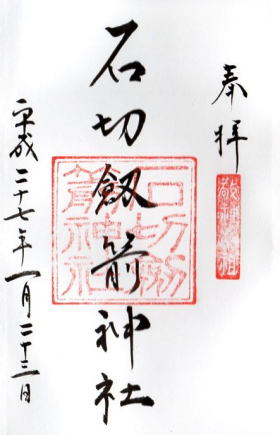 奉拝
石切劔箭神社
平成二十七年一月二十三日
石切劔箭神社